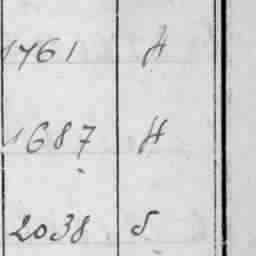 1761 H
1687 H
2038 S